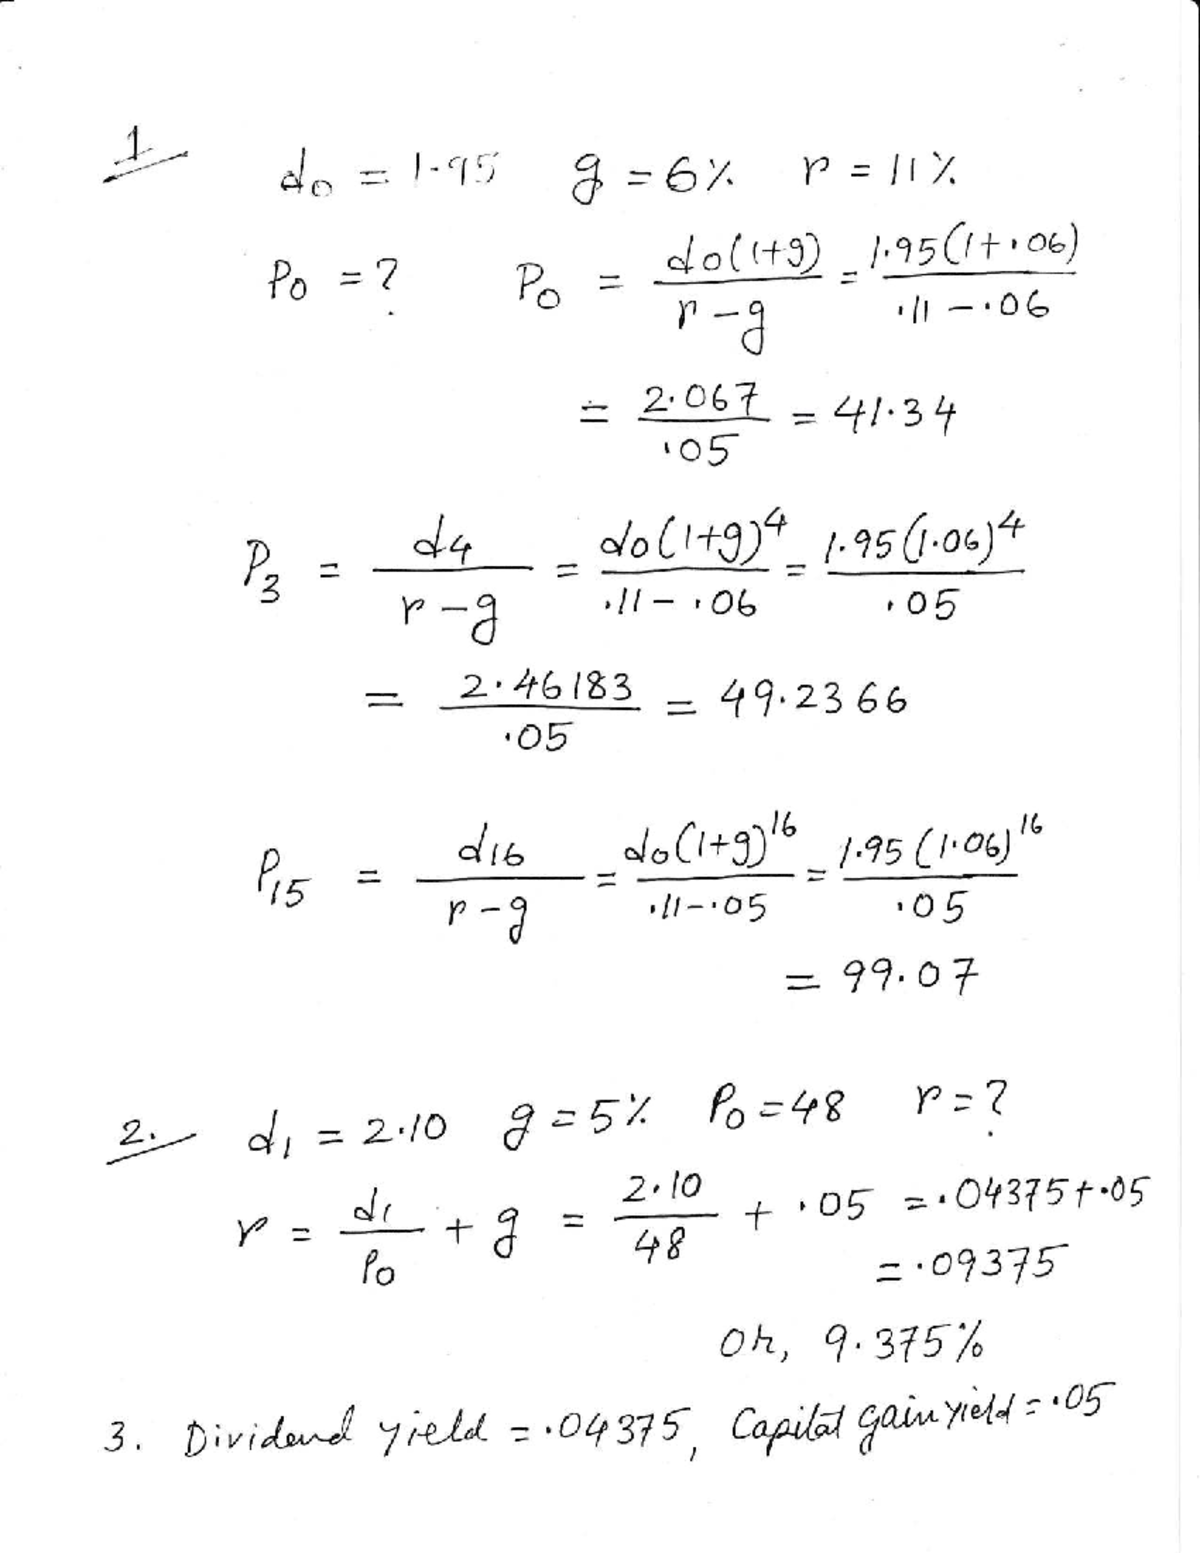 1
d0 = 1.95 g = 6% r = 11%
P0 = ? P0 = d0(1+g) / r-g = 1.95(1+.06) / .11-.06
= 2.067 / .05 = 41.34
P3 = d4 / r-g = d0(1+g)^4 / .11-.06 = 1.95(1.06)^4 / .05
= 2.46183 / .05 = 49.2366
P15 = d16 / r-g = d0(1+g)^16 / .11-.05 = 1.95(1.06)^16 / .05
= 99.07
2. d1 = 2.10 g = 5% P0 = 48 r = ?
r = d1 / P0 + g = 2.10 / 48 + .05 = .04375+.05
= .09375
or, 9.375%
3. Dividend yield = .04375, Capital gain yield = .05